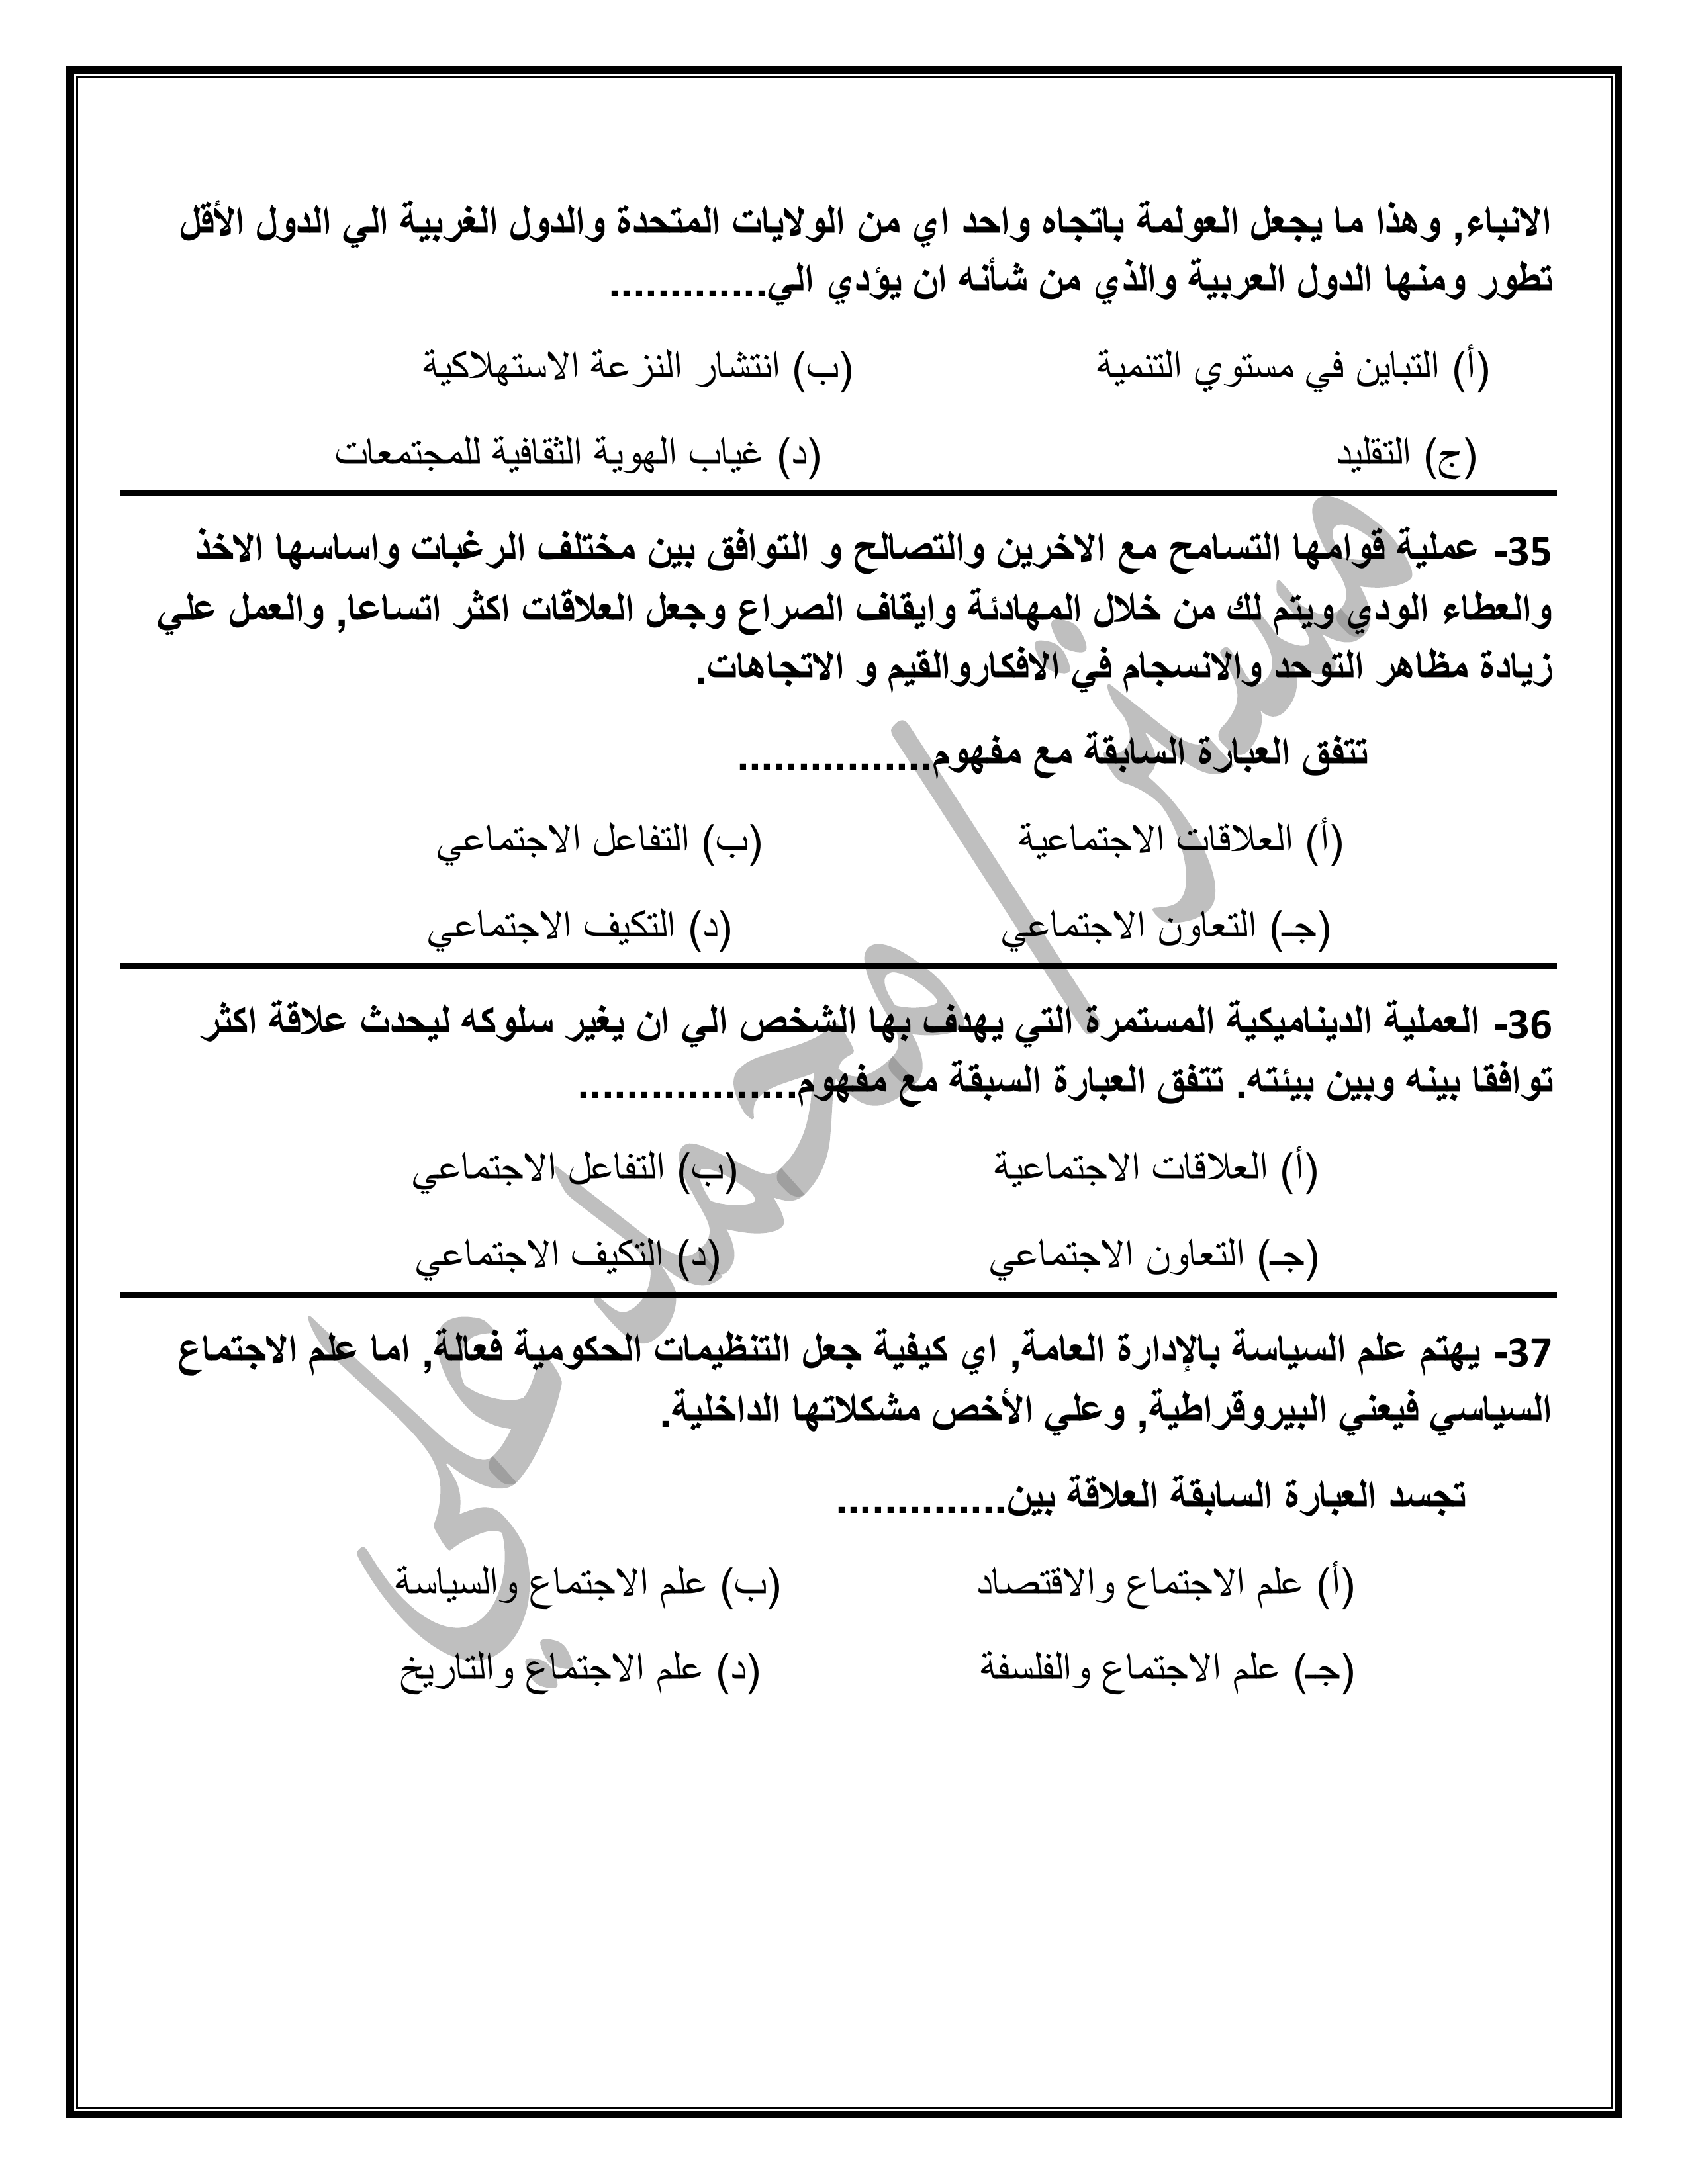 الانباء, وهذا ما يجعل العولمة باتجاه واحد اي من الولايات المتحدة والدول الغربية الي الدول الأقل
تطور ومنها الدول العربية والذي من شأنه ان يؤدي الي.............
(أ) التباين في مستوي التنمية (ب) انتشار النزعة الاستهلاكية
(ج) التقليد (د) غياب الهوية الثقافية للمجتمعات
35- عملية قوامها التسامح مع الاخرين والتصالح و التوافق بين مختلف الرغبات واساسها الاخذ
والعطاء الودي ويتم لك من خلال المهادئة وايقاف الصراع وجعل العلاقات اكثر اتساعا, والعمل علي
زيادة مظاهر التوحد والانسجام في الافكاروالقيم و الاتجاهات.
تتفق العبارة السابقة مع مفهوم................
(أ) العلاقات الاجتماعية (ب) التفاعل الاجتماعي
(جـ) التعاون الاجتماعي (د) التكيف الاجتماعي
36- العملية الديناميكية المستمرة التي يهدف بها الشخص الي ان يغير سلوكه ليحدث علاقة اكثر
توافقا بينه وبين بيئته. تتفق العبارة السبقة مع مفهوم..................
(أ) العلاقات الاجتماعية (ب) التفاعل الاجتماعي
(جـ) التعاون الاجتماعي (د) التكيف الاجتماعي
37- يهتم علم السياسة بالإدارة العامة, اي كيفية جعل التنظيمات الحكومية فعالة, اما علم الاجتماع
السياسي فيعني البيروقراطية, وعلي الأخص مشكلاتها الداخلية.
تجسد العبارة السابقة العلاقة بين..............
(أ) علم الاجتماع والاقتصاد (ب) علم الاجتماع والسياسة
(جـ) علم الاجتماع والفلسفة (د) علم الاجتماع والتاريخ
مستر/ محمد علي